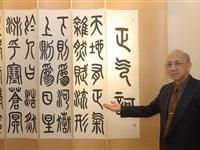 正气歌
天地有正气
雜然賦流形
下則為河嶽
上則為日星
於人曰浩然
沛乎塞蒼冥